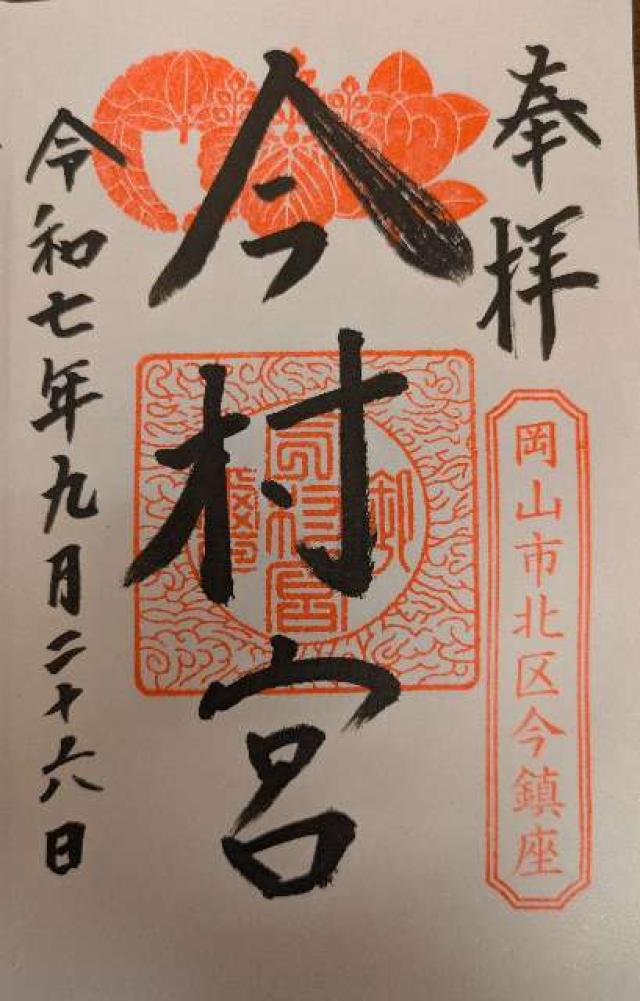 奉拝
岡山市北区今鎮座
今村宮
今村宮
令和七年九月二十六日